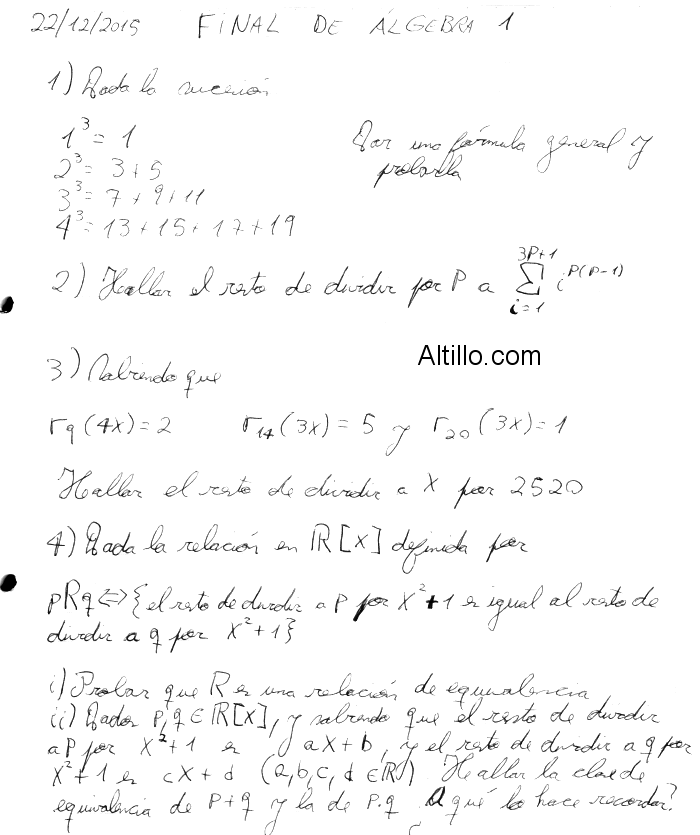 22/12/2015 FINAL DE ÁLGEBRA 1
1) Dada la sucesión
1³ = 1
2³ = 3+5
3³ = 7+9+11
4³ = 13+15+17+19
Dar una fórmula general y
probarla
2) Hallar el resto de dividir por P a ∑_{i=1}^{3P+1} i^{P(P-1)}
Altillo.com
3) Sabiendo que
r₉(4x) = 2 r₁₄(3x) = 5 y r₂₀(3x) = 1
Hallar el resto de dividir a X por 2520
4) Dada la relación en ℝ[X] definida por
pRq ⟺ {el resto de dividir a p por X²+1 es igual al resto de
dividir a q por X²+1}
i) Probar que R es una relación de equivalencia
ii) Dados p,q ∈ ℝ[X], y sabiendo que el resto de dividir
a P por X²+1 es aX+b, y el resto de dividir a q por
X²+1 es cX+d (a,b,c,d ∈ ℝ) Hallar la clase de
equivalencia de P+q y la de P.q A qué lo hace recordar?